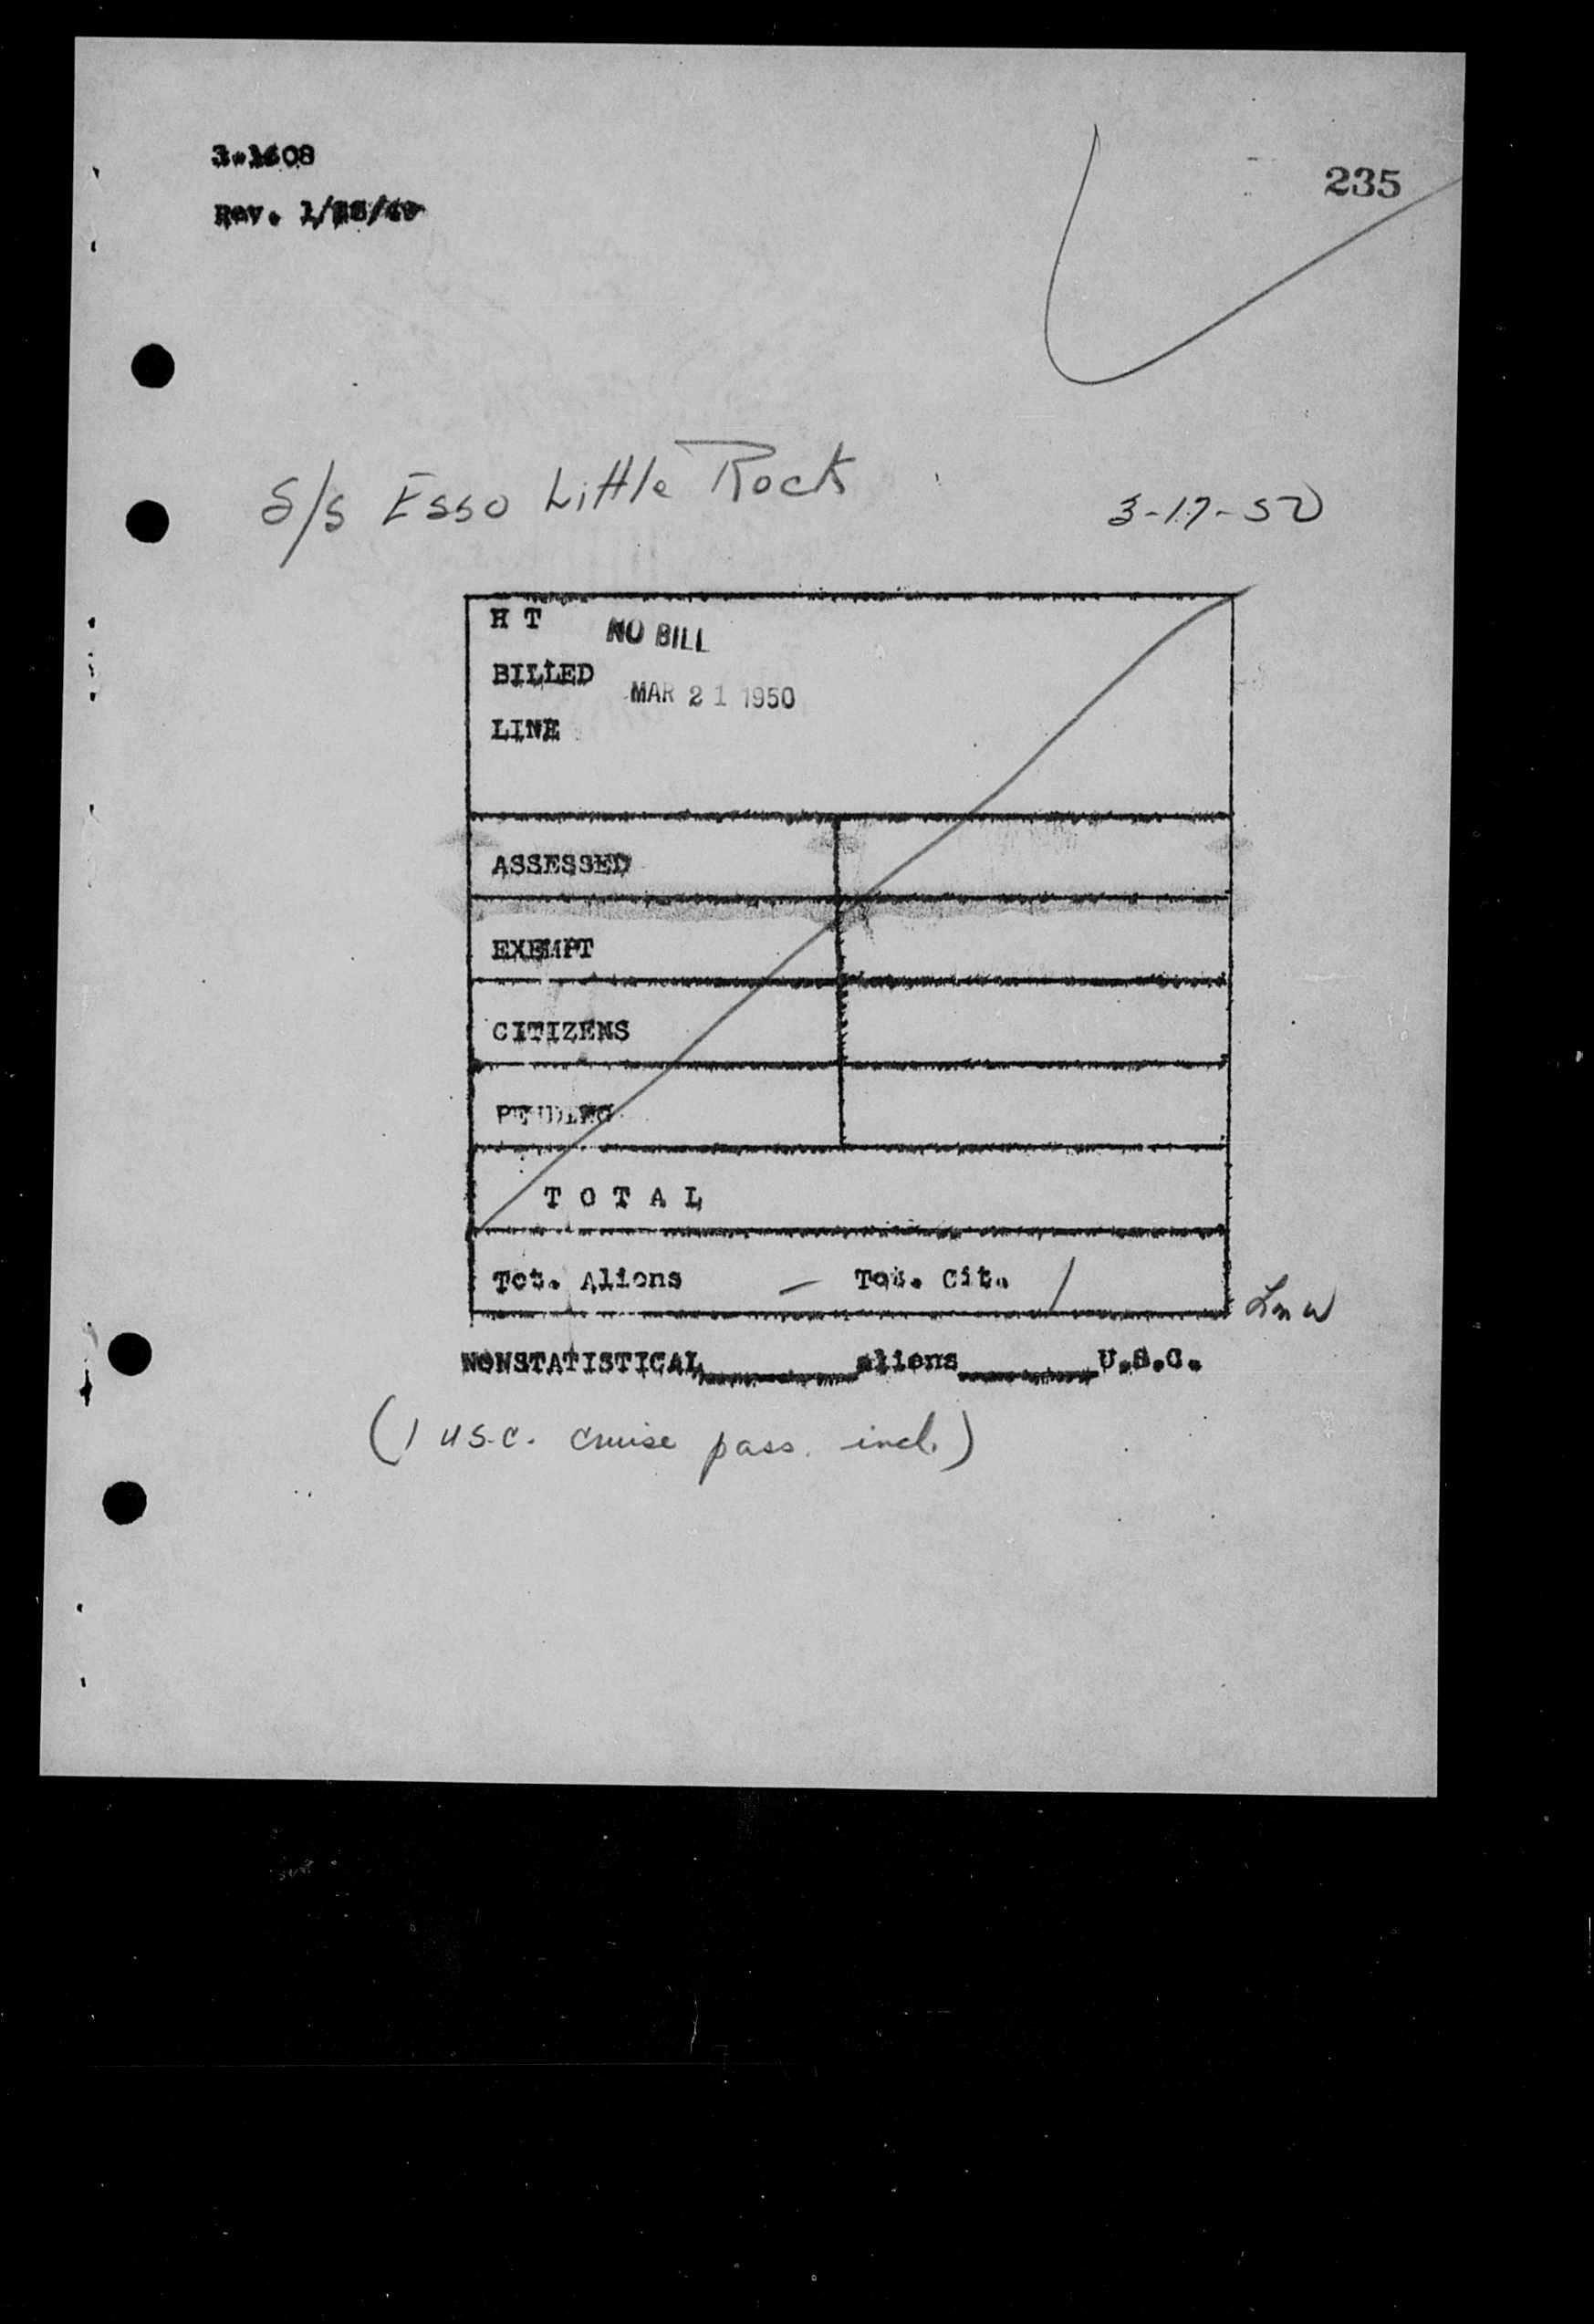 235
3-1608
Rev. 1/
S/S Esso Little Rock
3-17-50
H T
NO BILL
BILLED
MAR 21 1950
LINE
ASSESSED
EXEMPT
CITIZENS
PENDING
TOTAL
Tot. Aliens – Tot. Cit. /
Lmw
NONSTATISTICAL________aliens________U.S.C.
(1 U.S.C. cruise pass. incl.)